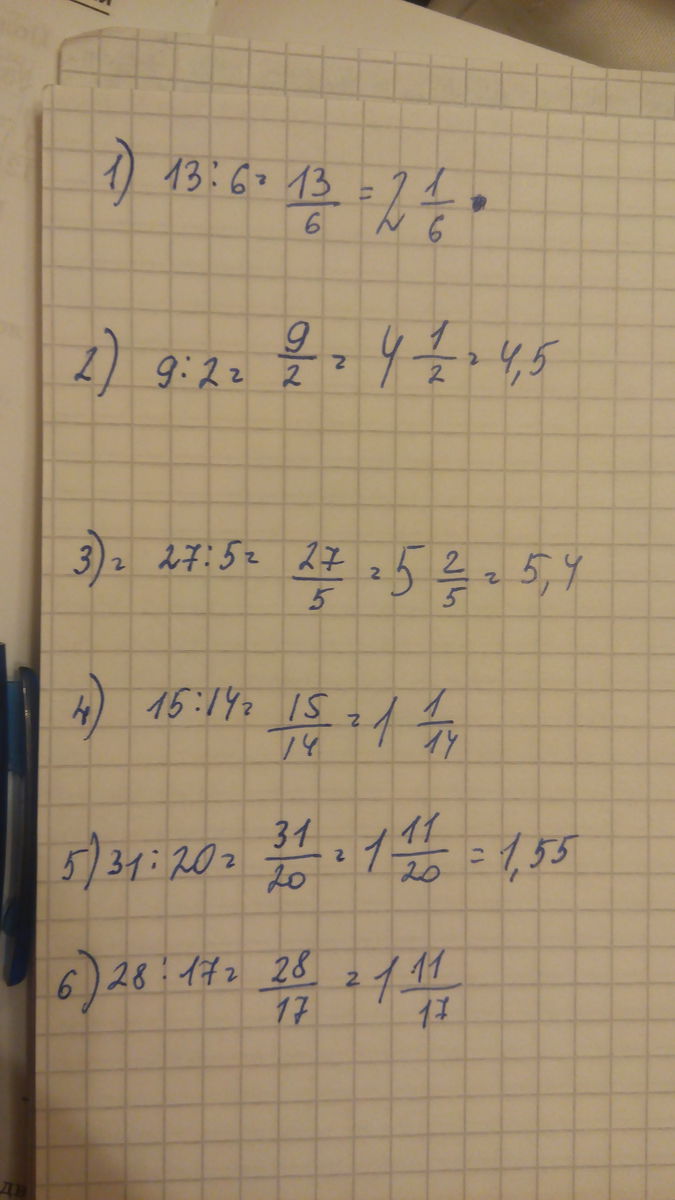 1) 13:6= 13/6 = 2 1/6
2) 9:2= 9/2 = 4 1/2 = 4,5
3)= 27:5= 27/5 = 5 2/5 = 5,4
4) 15:14= 15/14 = 1 1/14
5) 31:20= 31/20 = 1 11/20 = 1,55
6) 28:17= 28/17 = 1 11/17